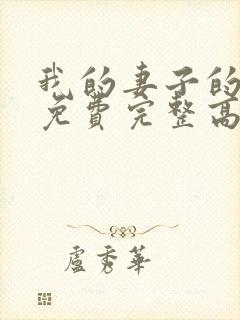 我的妻子的
免费完整高
盧秀華